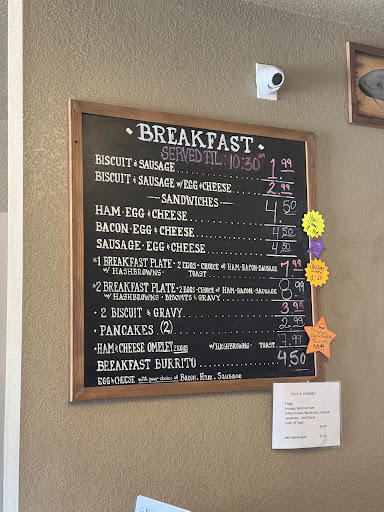 • BREAKFAST •
SERVED TIL: 10:30 am
BISCUIT & SAUSAGE 1.99
BISCUIT & SAUSAGE W/EGG & CHEESE 2.99
— SANDWICHES —
HAM·EGG & CHEESE 4.50
BACON·EGG & CHEESE 4.50
SAUSAGE·EGG & CHEESE 4.50
#1 BREAKFAST PLATE · 2 EGGS · CHOICE of HAM·BACON·SAUSAGE 7.99
W/ HASHBROWNS · TOAST
#2 BREAKFAST PLATE · 2 EGGS · CHOICE of HAM·BACON·SAUSAGE 8.99
W/ HASHBROWNS · BISCUITS & GRAVY
• 2 BISCUIT & GRAVY 3.95
• PANCAKES (2) 2.99
• HAM & CHEESE OMELET 2 EGGS W/HASHBROWNS · TOAST 7.99
BREAKFAST BURRITO 4.50
EGG & CHEESE with your choice of Bacon, Ham, Sausage
2 Eggs